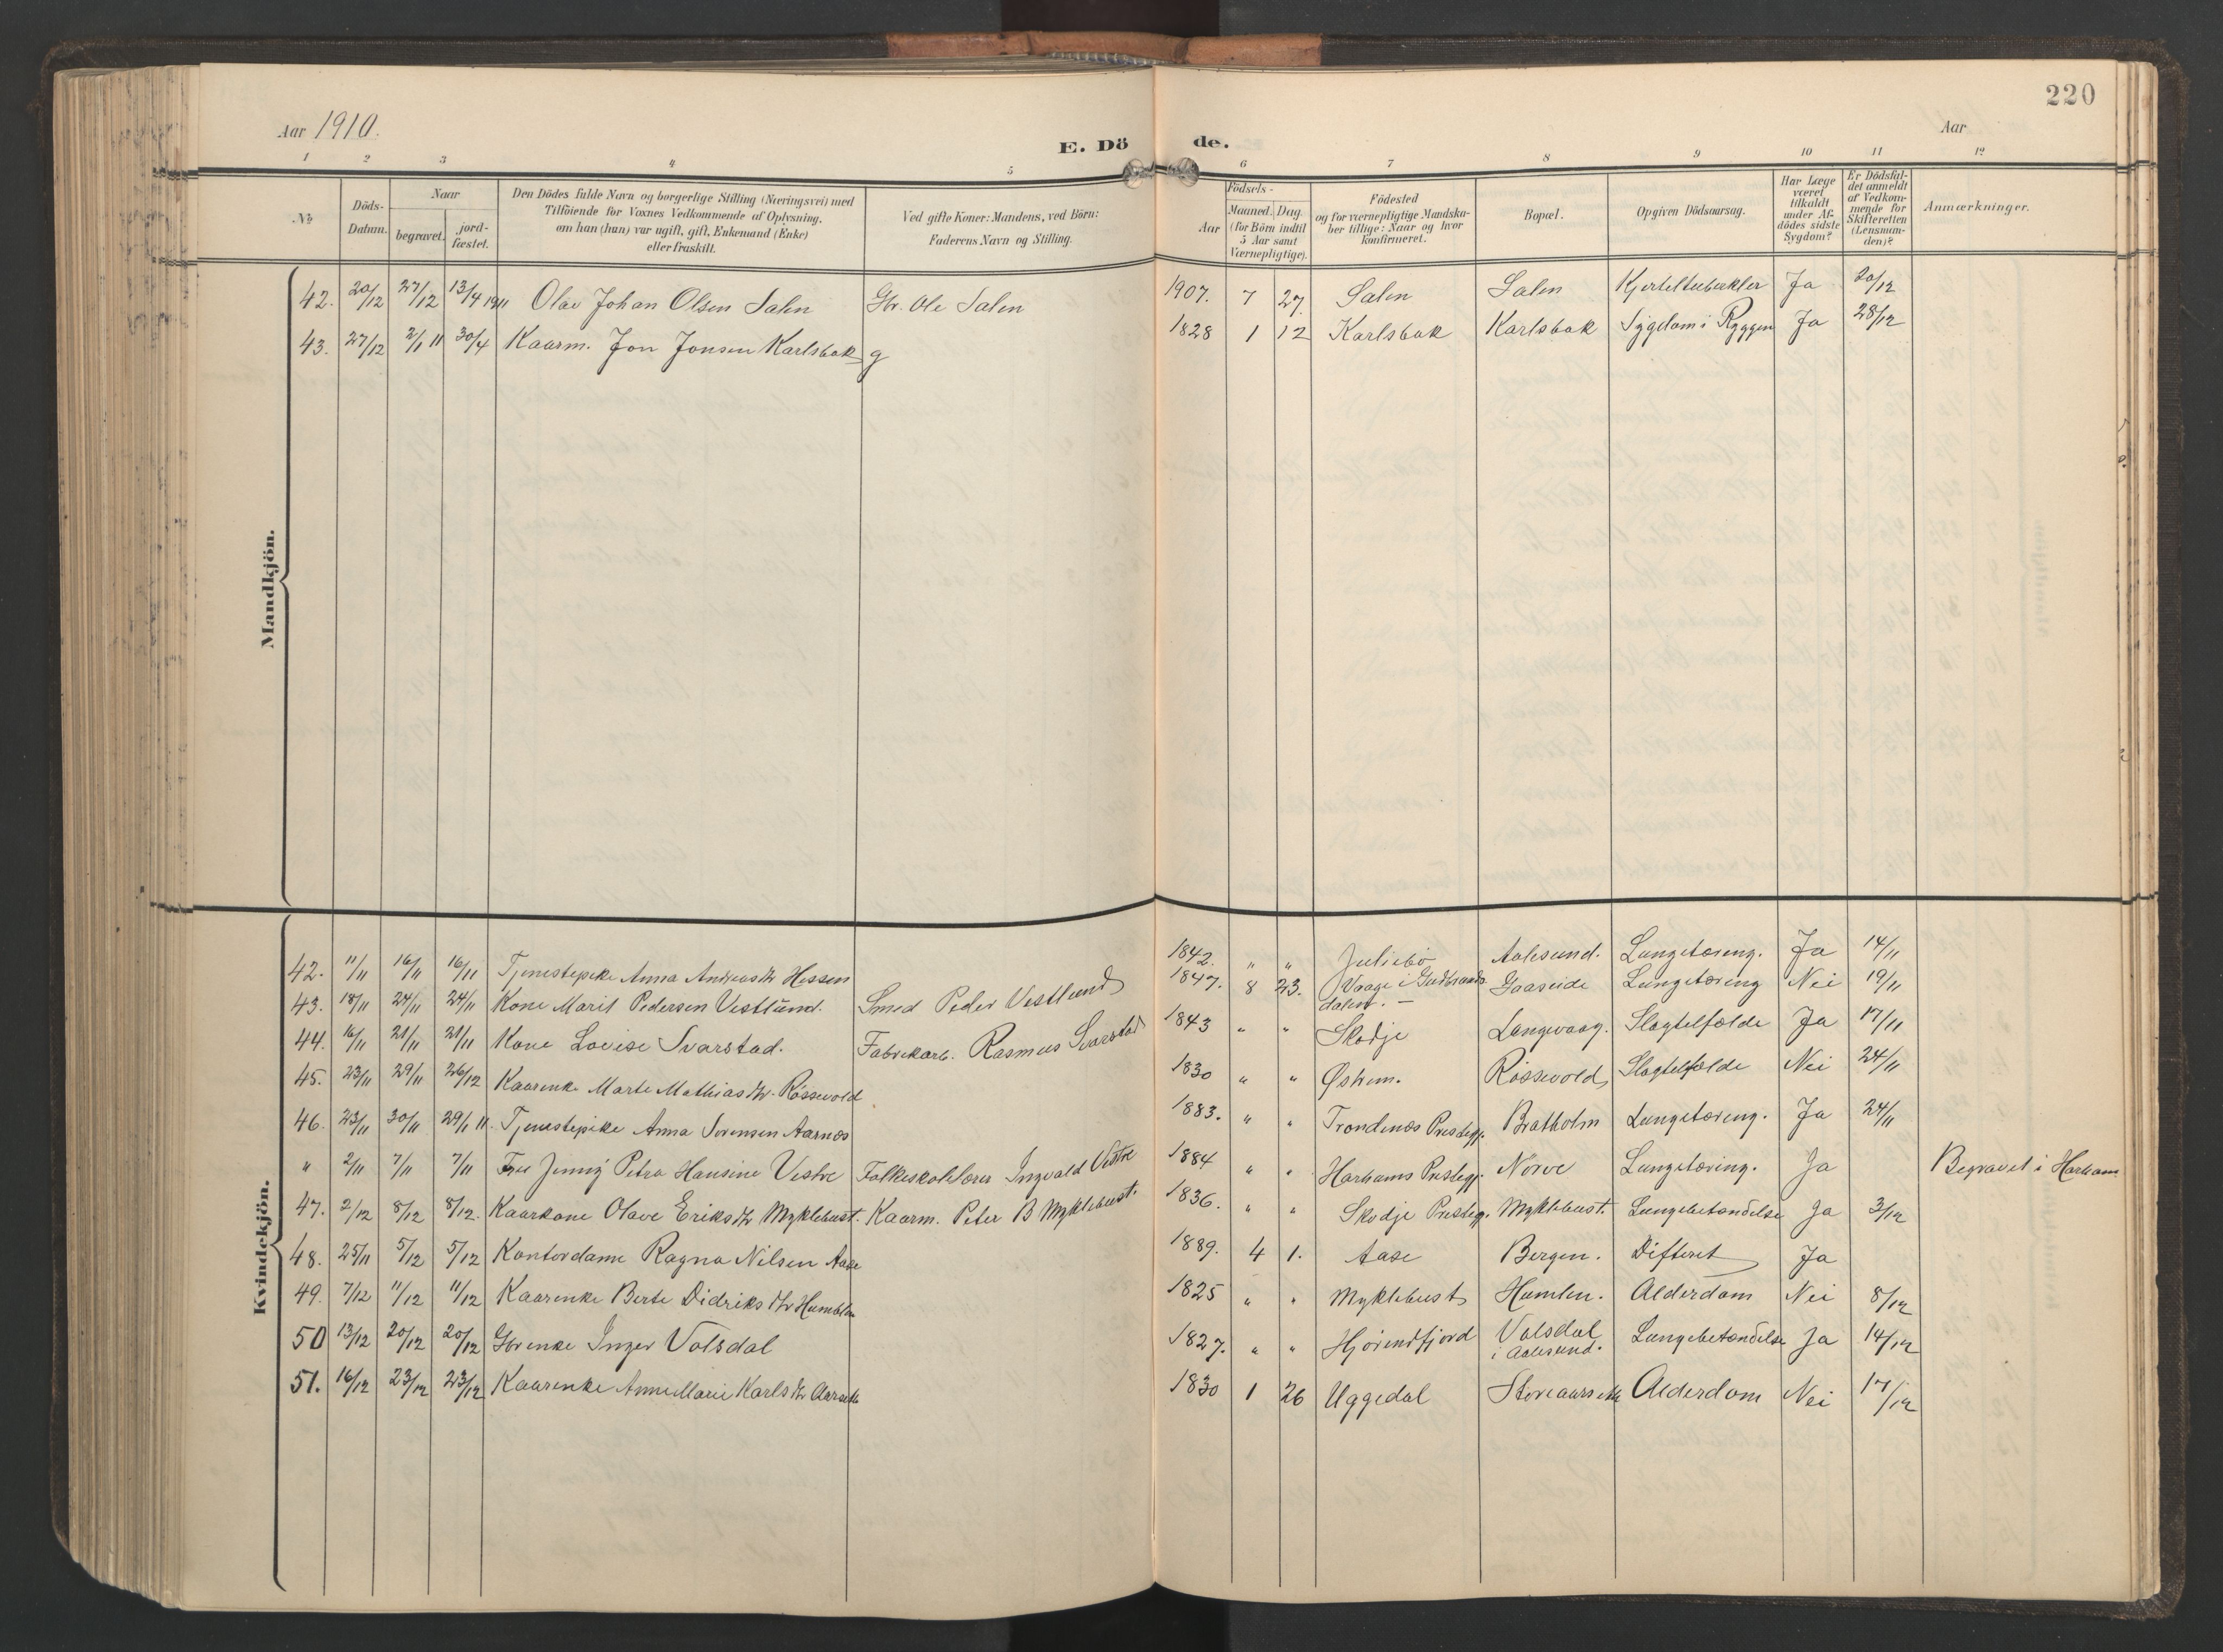 220
Aar 1910.
Aar
E. Dö de.
1 2 3 4 5 6 7 8 9 10 11 12
№
Döds-Datum.
Naar
begravet. jord-fæstet.
Den Dödes fulde Navn og borgerlige Stilling (Næringsvei) med
Tilföiende for Voxnes Vedkommende af Oplysning,
om han (hun) var ugift, gift, Enkemand (Enke)
eller fraskilt.
Ved gifte Koner: Mandens, ved Börn:
Faderens Navn og Stilling.
Födsels-
Aar Maaned. Dag.
(for Börn indtil
5 Aar samt
Værnepligtige).
Födested
og for værnepligtige Mandska-
ber tillige: Naar og hvor
konfirmeret.
Bopæl.
Opgiven Dödsaarsag.
Har Læge
været
tilkaldt
under Af-
dödes sidste
Sygdom?
Er Dödsfal-
det anmeldt
af Vedkom-
mende for
Skifteretten
(Lensman-
den)?
Anmærkninger.
Mandkjön.
42. 20/12 27/12 13/4 1911 Olav Johan Olsen Salen Gbr. Ole Salen 1907. 7 27 Salen Salen Kjerteltuberkler Ja 20/12
43. 27/12 2/1 11 30/4 Kaarm. Jon Jonsen Karlsbak g 1828 1 12 Karlsbak Karlsbak Sygdom i Ryggen Ja 28/12
Kvindekjön.
42. 11/11 16/11 16/11 Tjenestepike Anna Andreasdtr Hessen 1842. " " Juliebø Aalesund. Lungetæring. Ja 14/11
43. 18/11 24/11 24/11 Kone Marit Pedersen Vestlund. Smed Peder Vestlund 1847. 8 23. Vaage i Gudbrands
dalen. - Gaaseide Lungetæring Nei 19/11
44. 16/11 21/11 21/11 Kone Lovise Svarstad. Fabrikarb. Rasmus Svarstad 1843 " " Skodje Langevaag. Slagtilfælde Ja 17/11
45. 23/11 29/11 26/12 Kaarenke Marte Mathiasdtr. Røssevold 1830 " " Østrem. Røssevold Slagtilfælde Nei 24/11
46. 23/11 30/11 29/1 11. Tjenestepike Anna Sørensen Aarnes 1883. " " Trondenes Prestegj. Bratholm Lungetæring. Ja 24/11
" 2/11 7/11 7/11 Fru Jenny Petra Hansine Vestre Folkeskolelærer Ingvald Vestre 1884 " " Harhams Prestegj. Nørve Lungetæring. Ja Begravet i Harham
47. 2/12 8/12 8/12. Kaarkone Olave Eriksdtr Myklebust. Kaarm. Peter B Myklebust. 1836. " " Skodje Prestegj. Myklebust. Lungebetændelse Ja 3/12
48. 25/11 5/12 5/12 Kontordame Ragna Nilsen Aase 1889. 4 1. Aase Bergen. Difterit Ja
49. 7/12 11/12 11/12 Kaarenke Berte Didriksdtr Humblen 1825 " " Myklebust Humlen. Alderdom Nei 8/12
50 13/12 20/12 20/12 Gbrenke Inger Volsdal 1827. " " Hjørendfjord Volsdal
i Aalesund. Lungebetændelse Ja 14/12
51. 16/12 23/12 23/12 Kaarenke Anne Marie Karlsdtr Aarseth 1830 1 26 Uggedal Storeaarseth Alderdom Nei 17/12